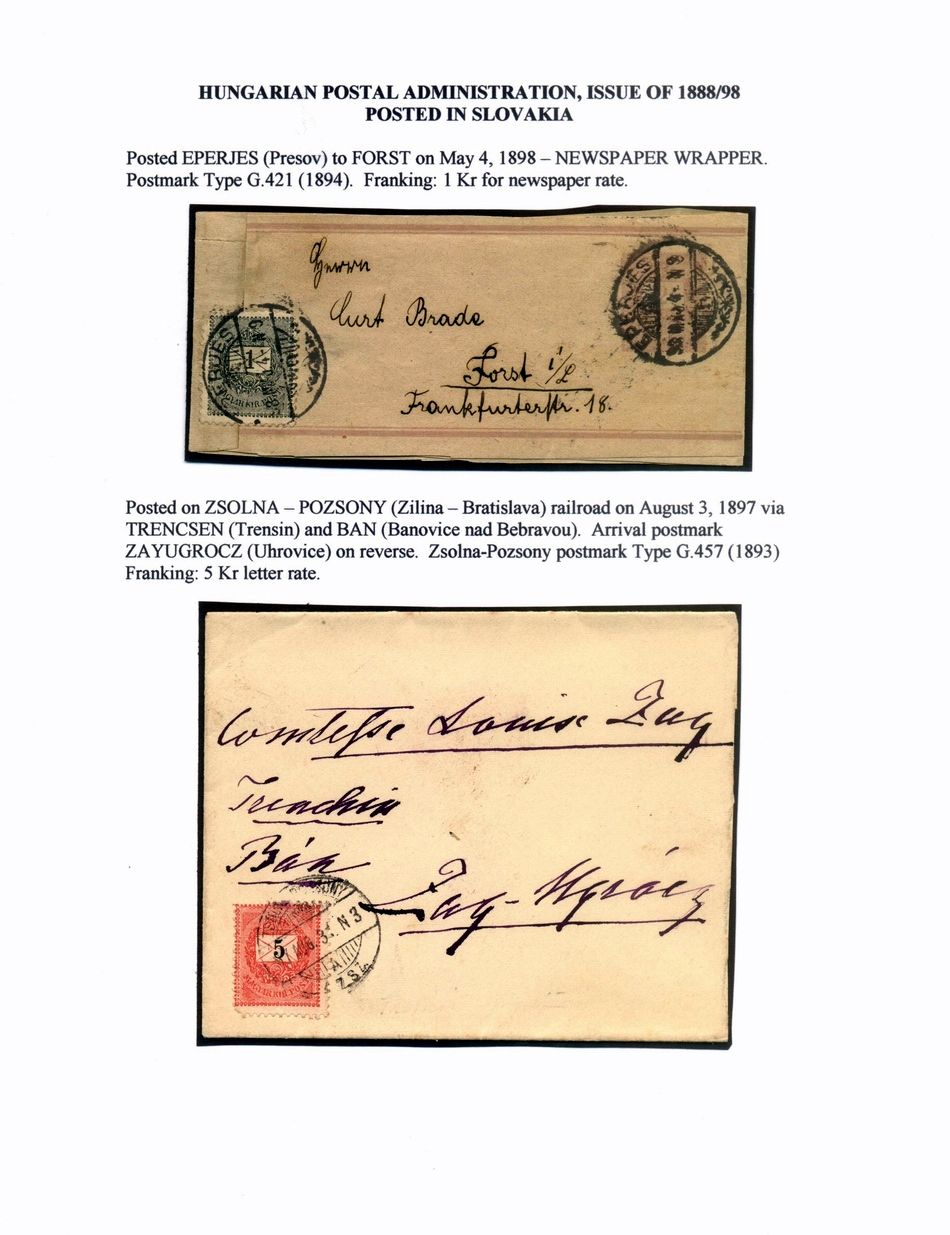 HUNGARIAN POSTAL ADMINISTRATION, ISSUE OF 1888/98
POSTED IN SLOVAKIA
Posted EPERJES (Presov) to FORST on May 4, 1898 – NEWSPAPER WRAPPER.
Postmark Type G.421 (1894). Franking: 1 Kr for newspaper rate.
Herrn
Curt Brade
Forst i/L
Frankfurterstr. 18.
EPERJES
1
Posted on ZSOLNA – POZSONY (Zilina – Bratislava) railroad on August 3, 1897 via
TRENCSEN (Trensin) and BAN (Banovice nad Bebravou). Arrival postmark
ZAYUGROCZ (Uhrovice) on reverse. Zsolna-Pozsony postmark Type G.457 (1893)
Franking: 5 Kr letter rate.
Comtesse Louise Zay
Trenchin
Bán
Zay-Ugrócz
5